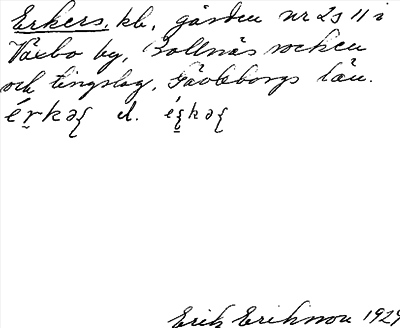 Erkers, kb, gården nr 2 s 11 i
Växbo by, Bollnäs socken
och tingslag, Gävleborgs län.
d.
Erik Erikson 1929